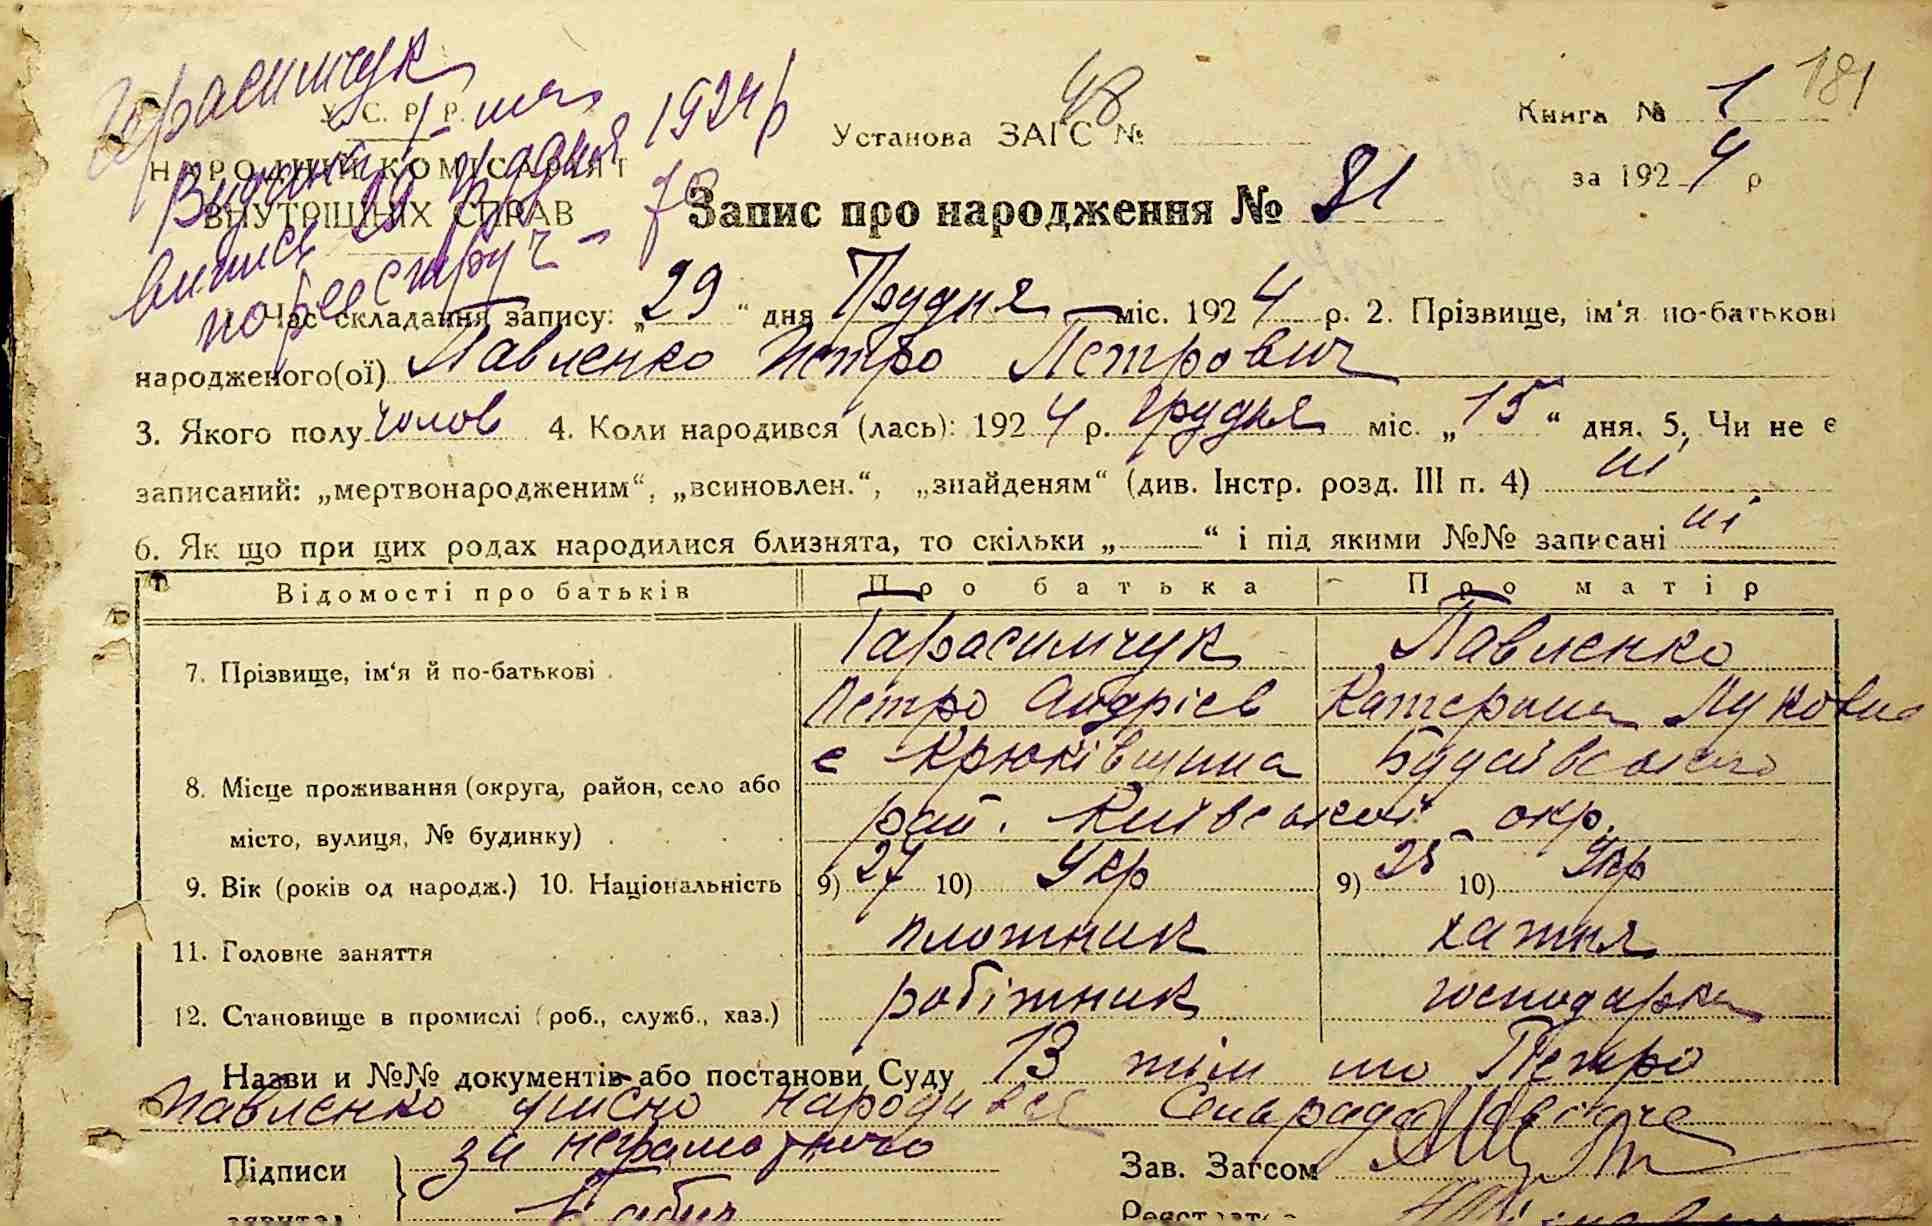 Герасимчук
181
У. С. Р. Р.
48
Установа ЗАГС №
Книга № 1
НАРОДНИЙ КОМІСАРІЯТ
за 1924 р
ВНУТРІШНІХ СПРАВ
29 грудня 1924 р
Запис про народження № 81
1. Час складання запису: „29“ дня Грудня міс. 1924 р. 2. Прізвище, ім'я по-батькові
народженого(ої) Павленко Петро Петрович
3. Якого полу чолов 4. Коли народився (лась): 1924 р. грудня міс. „15“ дня. 5. Чи не є
записаний: „мертвонародженим“, „всиновлен.“, „знайденям“ (див. Інстр. розд. III п. 4) ні
6. Як що при цих родах народилися близнята, то скільки „ “ і під якими №№ записані ні
Відомості про батьків Про батька Про матір
7. Прізвище, ім'я й по-батькові
Гарасимчук Павленко
Петро Андрієв Катерина Луковна
8. Місце проживання (округа, район, село або
місто, вулиця, № будинку)
с Крюківщина Будаївського
рай. Київської окр.
9. Вік (років од народж.) 10. Національність 9) 27 10) Укр 9) 25 10) Укр
11. Головне заняття плотник хатня
12. Становище в промислі (роб., служб., хаз.) робітник господарка
Назви и №№ документів або постанови Суду В тім що Петро
Павленко дійсно народився Сельрада
Підписи за неграмотного
Зав. Загсом